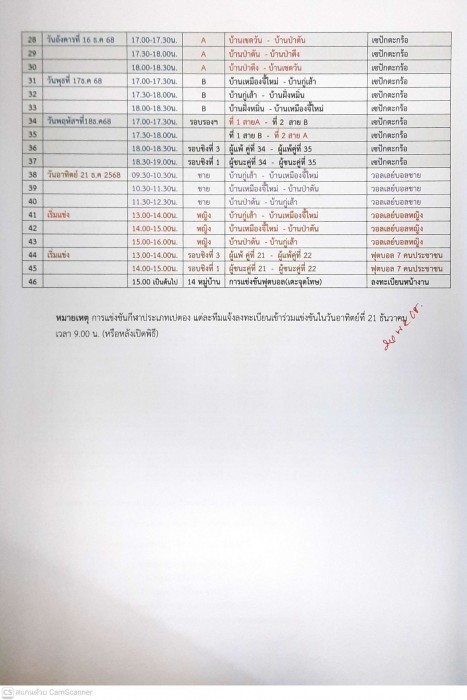 28 วันอังคารที่ 16 ธ.ค 68 17.00-17.30น. A บ้านเขตวัน - บ้านป่าตัน เซปักตะกร้อ
29 17.30-18.00น. A บ้านป่าตัน - บ้านป่าตึง เซปักตะกร้อ
30 18.00-18.30น. A บ้านป่าตึง - บ้านเขตวัน เซปักตะกร้อ
31 วันพุธที่ 17ธ.ค 68 17.00-17.30น. B บ้านเหมืองจี้ใหม่ - บ้านกู่เส้า เซปักตะกร้อ
32 17.30-18.00น. B บ้านกู่เส้า - บ้านฝั่งหมิ่น เซปักตะกร้อ
33 18.00-18.30น. B บ้านฝั่งหมิ่น - บ้านเหมืองจี้ใหม่ เซปักตะกร้อ
34 วันพฤหัสฯที่18ธ.ค68 17.00-17.30น. รอบรองฯ ที่ 1 สายA - ที่ 2 สาย B เซปักตะกร้อ
35 17.30-18.00น. ที่ 1 สาย B - ที่ 2 สาย A เซปักตะกร้อ
36 18.00-18.30น. รอบชิงที่ 3 ผู้แพ้ คู่ที่ 34 - ผู้แพ้คู่ที่ 35 เซปักตะกร้อ
37 18.30-19.00น. รอบชิงที่ 1 ผู้ชนะคู่ที่ 34 - ผู้ชนะคู่ที่ 35 เซปักตะกร้อ
38 วันอาทิตย์ 21 ธ.ค 2568 09.30-10.30น. ชาย บ้านกู่เส้า - บ้านเหมืองจี้ใหม่ วอลเลย์บอลชาย
39 10.30-11.30น. ชาย บ้านเหมืองจี้ใหม่ - บ้านป่าตัน วอลเลย์บอลชาย
40 11.30-12.30น. ชาย บ้านป่าตัน - บ้านกู่เส้า วอลเลย์บอลชาย
41 เริ่มแข่ง 13.00-14.00น. หญิง บ้านกู่เส้า - บ้านเหมืองจี้ใหม่ วอลเลย์บอลหญิง
42 14.00-15.00น. หญิง บ้านเหมืองจี้ใหม่ - บ้านป่าตัน วอลเลย์บอลหญิง
43 15.00-16.00น. หญิง บ้านป่าตัน - บ้านกู่เส้า วอลเลย์บอลหญิง
44 เริ่มแข่ง 13.00-14.00น. รอบชิงที่ 3 ผู้แพ้ คู่ที่ 21 - ผู้แพ้คู่ที่ 22 ฟุตบอล 7 คนประชาชน
45 14.00-15.00น. รอบชิงที่ 1 ผู้ชนะคู่ที่ 21 - ผู้ชนะคู่ที่ 22 ฟุตบอล 7 คนประชาชน
46 15.00 เป็นต้นไป 14 หมู่บ้าน การแข่งขันฟุตบอล(เตะจุดโทษ) ลงทะเบียนหน้างาน
หมายเหตุ การแข่งขันกีฬาประเภทเปตอง แต่ละทีมแจ้งลงทะเบียนเข้าร่วมแข่งขันในวันอาทิตย์ที่ 21 ธันวาคม
เวลา 9.00 น. (หรือหลังเปิดพิธี)
CS สแกนด้วย CamScanner